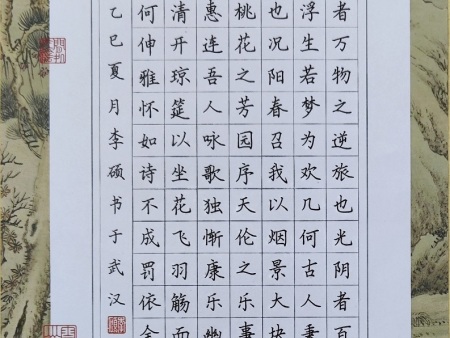 者万物之逆旅也光阴者百
浮生若梦为欢几何古人秉
也况阳春召我以烟景大块
桃花之芳园序天伦之乐事
惠连吾人咏歌独惭康乐幽
清开琼筵以坐花飞羽觞而
何伸雅怀如诗不成罚依金
乙巳夏月李硕书于武汉